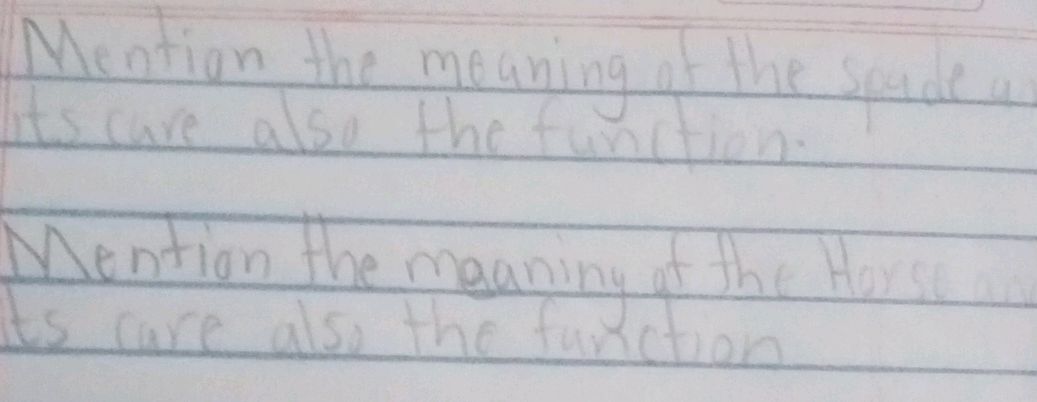 Mention the meaning of the spade an
its care also the function.
Mention the meaning of the Horse and
its care also the function